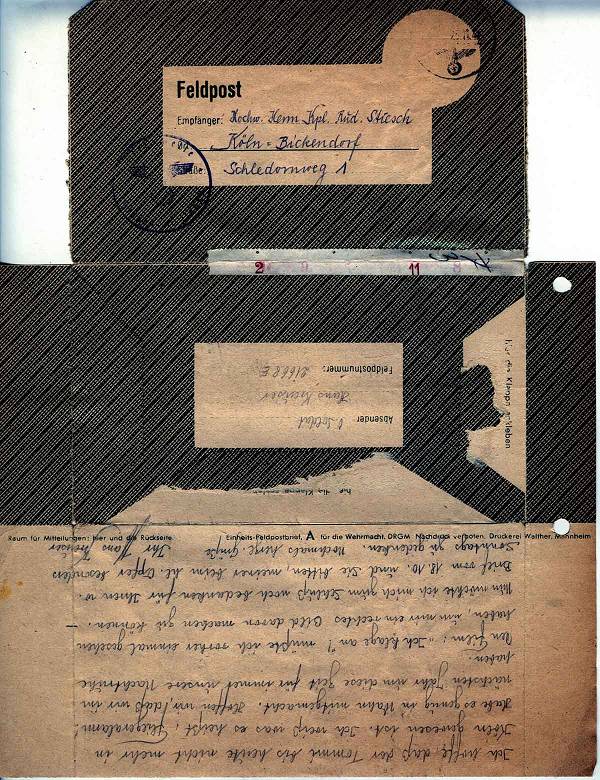 Feldpost
Empfänger: Hochw. Herrn Kpl. Rud. Stiesch
Köln-Bickendorf
Straße: Schledornweg 1.
2 11
hier die Klappe ankleben
Absender
Soldat
Hans
Feldpostnummer: 21668 E
hier die Klappe
Raum für Mitteilungen: hier und die Rückseite. Einheits-Feldpostbrief, A für die Wehrmacht, DRGM Nachdruck verboten. Druckerei Walther, Mannheim
Ich hoffe, daß der Tommi bis heute nicht mehr in
Köln gewesen ist. Ich weiß was es heißt, Fliegeralarm!
Habe es genug in Hahn mitgemacht. Hoffen wir, daß wir im
nächsten Jahr um diese Zeit für immer unsere Nachtruhe
haben.
Den Film: „Ich klage an“ müßte ich vorher einmal gesehen
haben, um mir ein rechtes Bild davon machen zu können. –
Nun möchte ich mich zum Schluß noch bedanken für Ihren w.
Brief vom 18.10. und Sie bitten, meiner beim hl. Opfer besonders
Sonntags zu gedenken. Nochmals herzl. Grüße
Ihr Hans